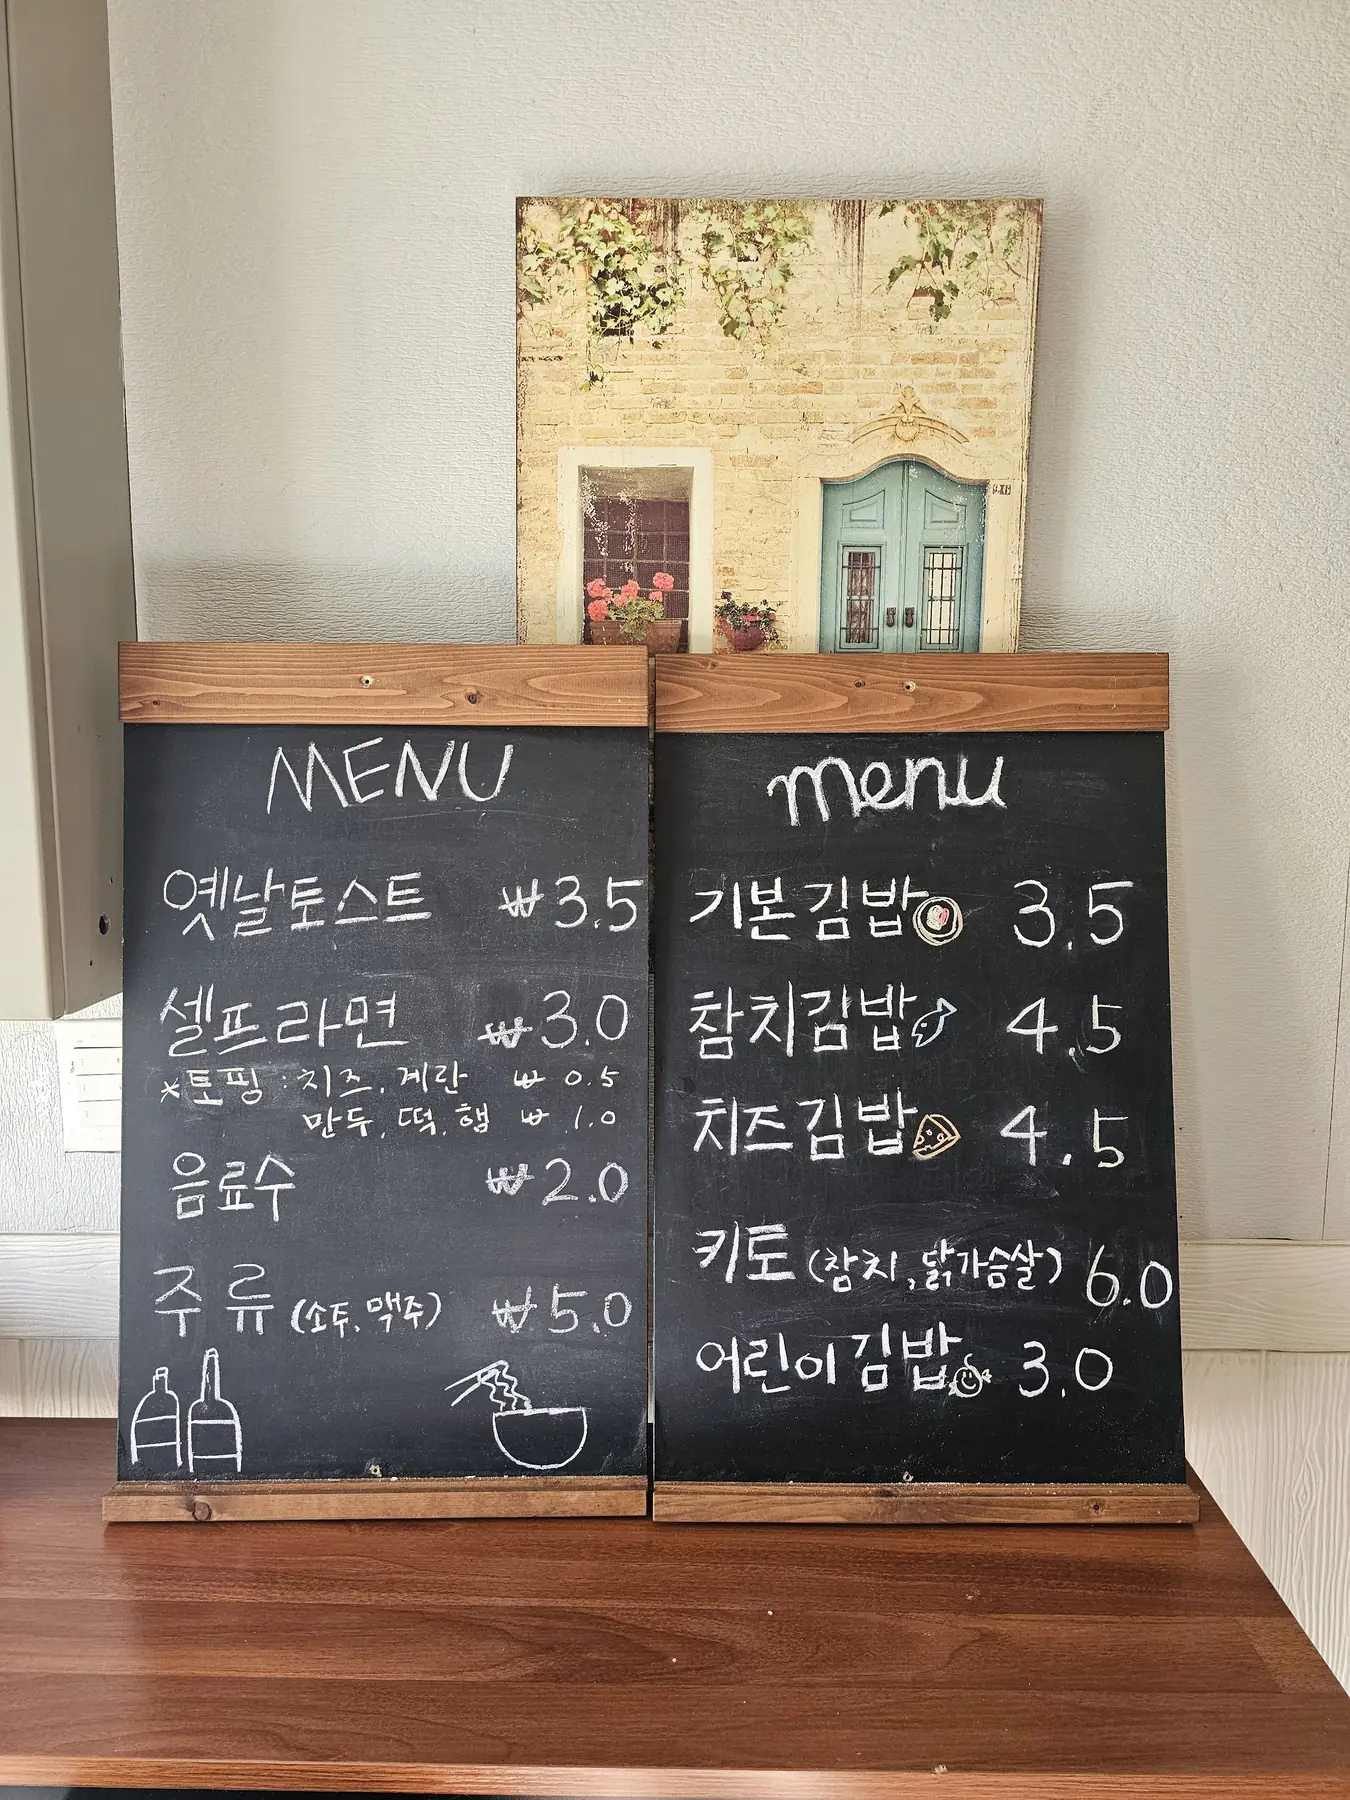 MENU
옛날토스트 ₩3.5
셀프라면 ₩3.0
*토핑 : 치즈, 계란 ₩ 0.5
만두, 떡, 햄 ₩ 1.0
음료수 ₩2.0
주류 (소주, 맥주) ₩5.0
menu
기본김밥 3.5
참치김밥 4.5
치즈김밥 4.5
키토 (참치, 닭가슴살) 6.0
어린이김밥 3.0